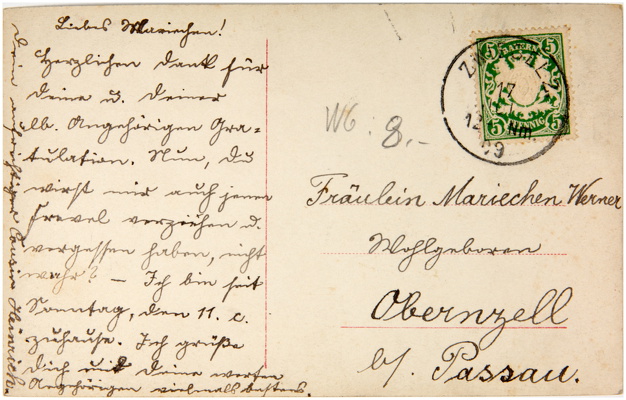 Liebes Mariechen!
Herzlichen Dank für
Deine u. Deiner
lb. Angehörigen Gra-
tulation. Nun, Du
wirst mir auch jenen
Frevel verziehen u.
vergessen haben, nicht
wahr? – Ich bin seit
Sonntag, den 11. c.
zuhause. Ich grüße
Dich und Deine werten
Angehörigen vielmals bestens.
Dein aufrichtiger Cousin Heinrich.
5 BAYERN 5
5 PFENNIG 5
17
12 Nm.
09
8.-
Fräulein Mariechen Werner
Wohlgeboren
Obernzell
b/. Passau.